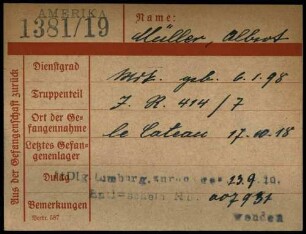 AMERIKA
1381/19
Name:
Müller, Albert
Aus der Gefangenschaft zurück
Dienstgrad
Msk. geb. 6.1.98
Truppenteil
J. R. 414/7
Ort der Gefangennahme
le Cateau 17.10.18
Letztes Gefangenenlager
Dulag
23.9.19.
Bemerkungen
007931
Vordr. 507
wenden